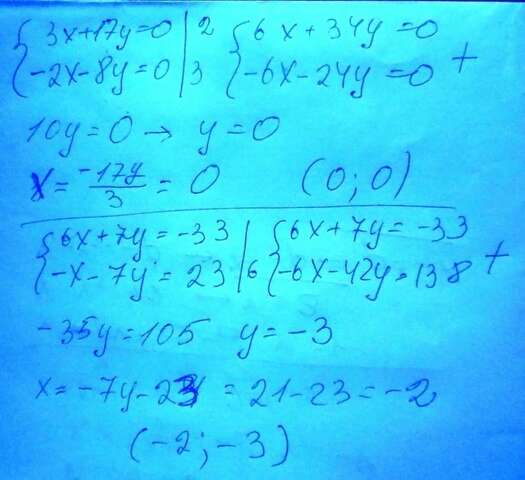 {3x+17y=0 |2 {6x+34y=0
{-2x-8y=0 |3 {-6x-24y=0 +
10y=0 → y=0
x= -17y/3 = 0 (0;0)
{6x+7y=-33 | {6x+7y=-33
{-x-7y=23 |6 {-6x-42y=138 +
-35y=105 y=-3
x=-7y-23 = 21-23=-2
(-2;-3)